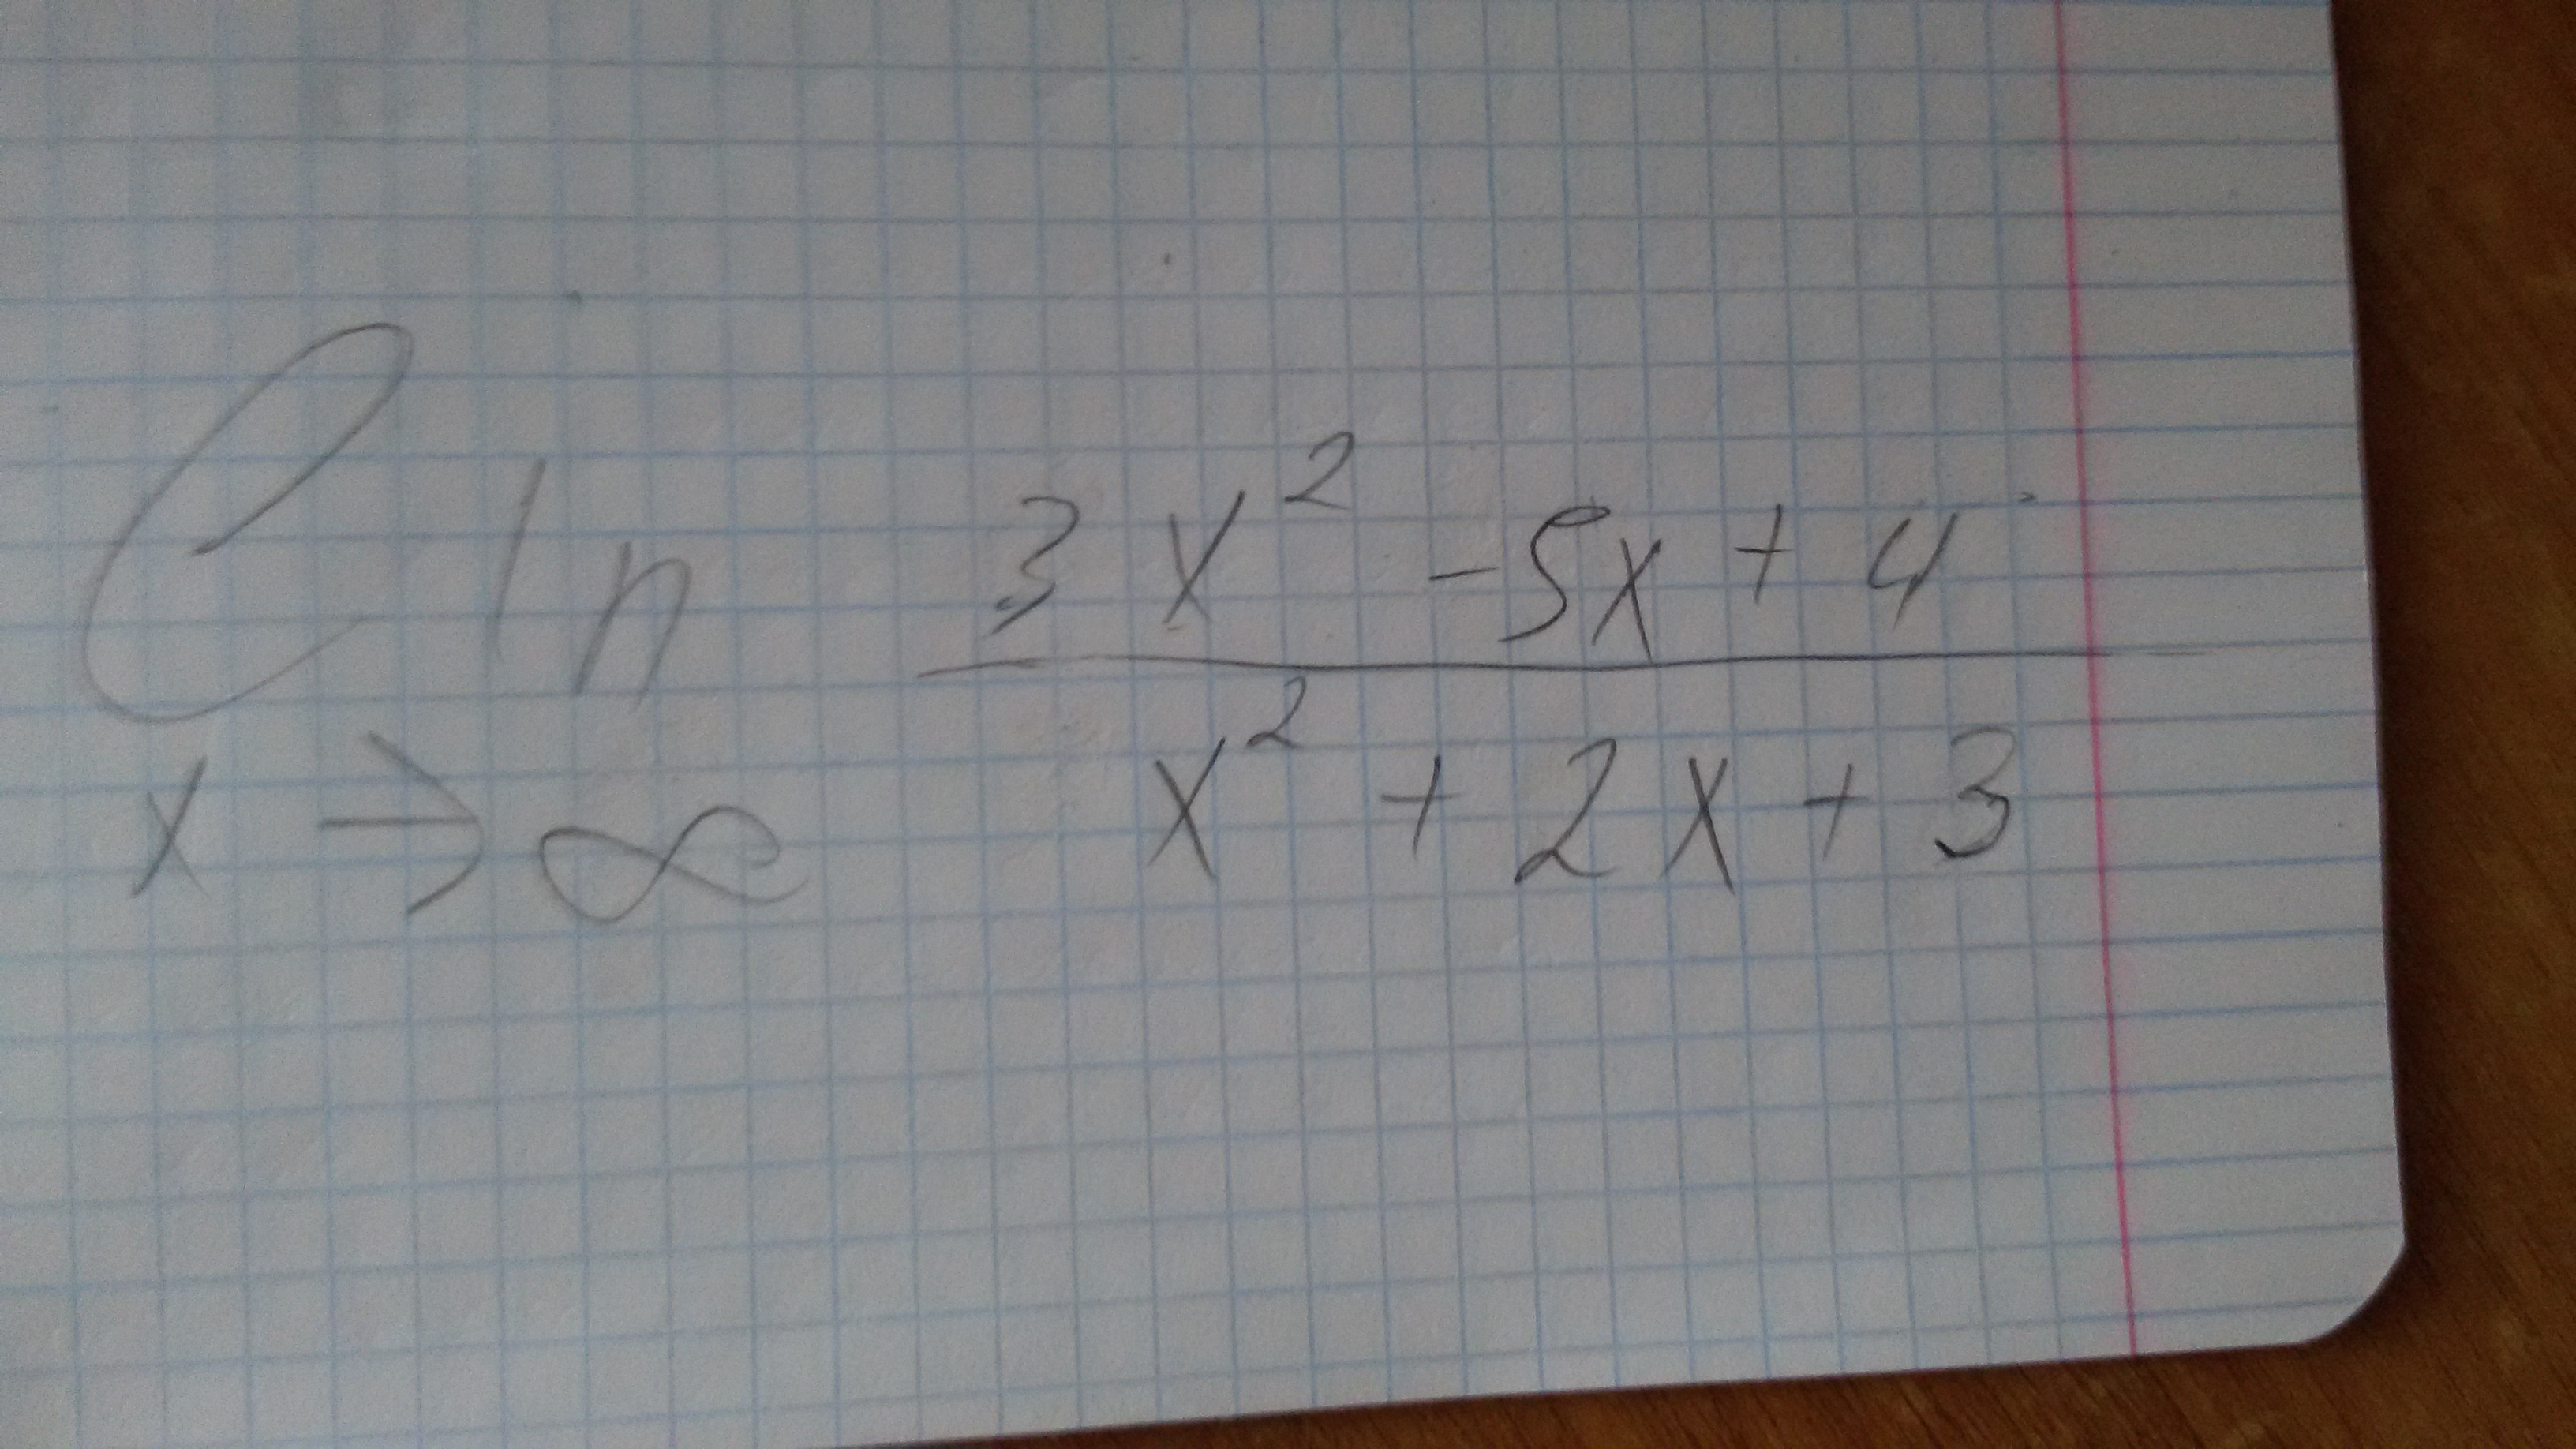 lin (3x² - 5x + 4) / (x² + 2x + 3)
x → ∞